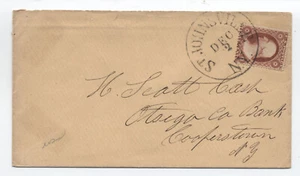 ST JOHNSVILLE N.Y.
DEC
H. Scott Cash
Otsego Co Bank
Cooperstown
NY